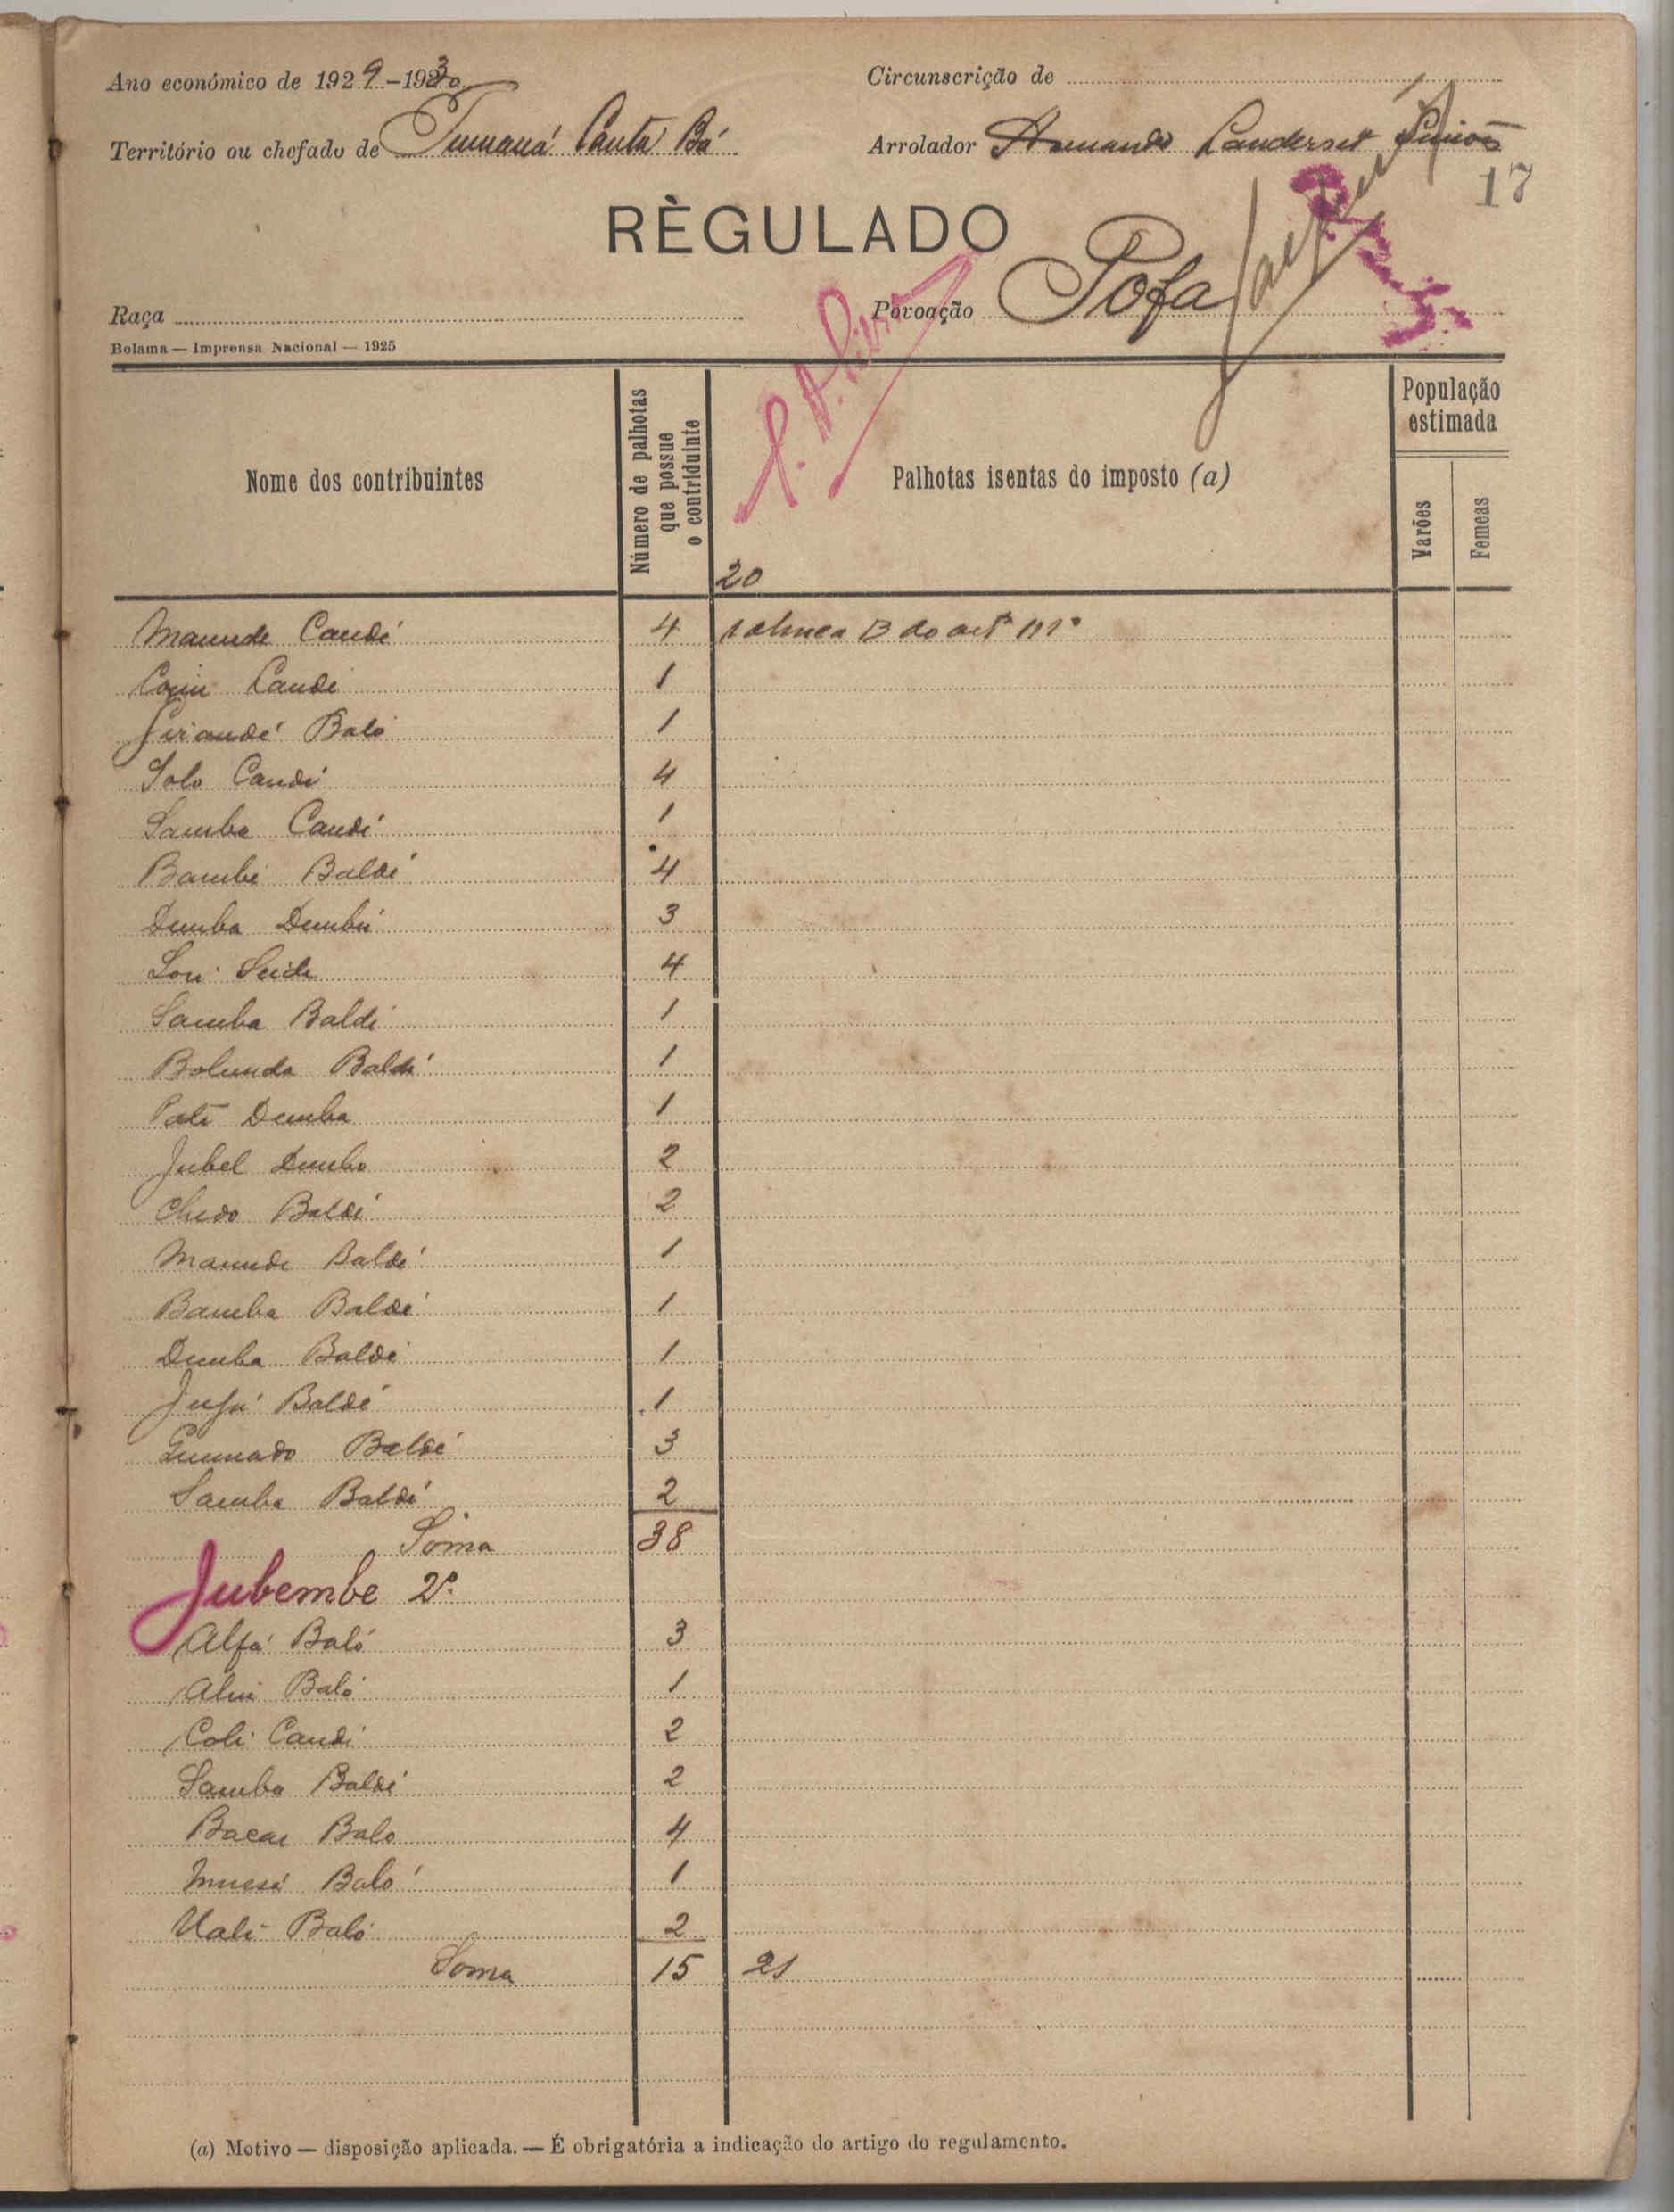 Ano económico de 1929-1930
Circunscrição de
Território ou chefado de Tumaná Canta Bá
Arrolador Armando Landerset Junior
17
RÈGULADO
Raça
Povoação Pofa
Bolama — Imprensa Nacional — 1925
Nome dos contribuintes
Número de palhotas que possue o contriduinte
Palhotas isentas do imposto (a)
População estimada
Varões
Femeas
20
Mamude Candé 4 1 alinea B do artº
Candi 1
Baló 1
Solo Candé 4
Samba Candé 1
Bambé Baldé 4
Demba Dembú 3
Seide 4
Samba Baldé 1
Bolunda Baldé 1
Paté Demba 1
Jubel Dembo 2
Chedo Baldé 2
Mamude Baldé 1
Bamba Baldé 1
Demba Baldé 1
Jufú Baldé 1
Baldé 3
Samba Baldé 2
Soma 38
Jubembe 2º
Alfá Baló 3
Baló 1
Coli Candi 2
Samba Baldé 2
Bacar Balo 4
Mussá Baló 1
Uali Baló 2
Soma 15 21
(a) Motivo — disposição aplicada. — É obrigatória a indicação do artigo do regulamento.